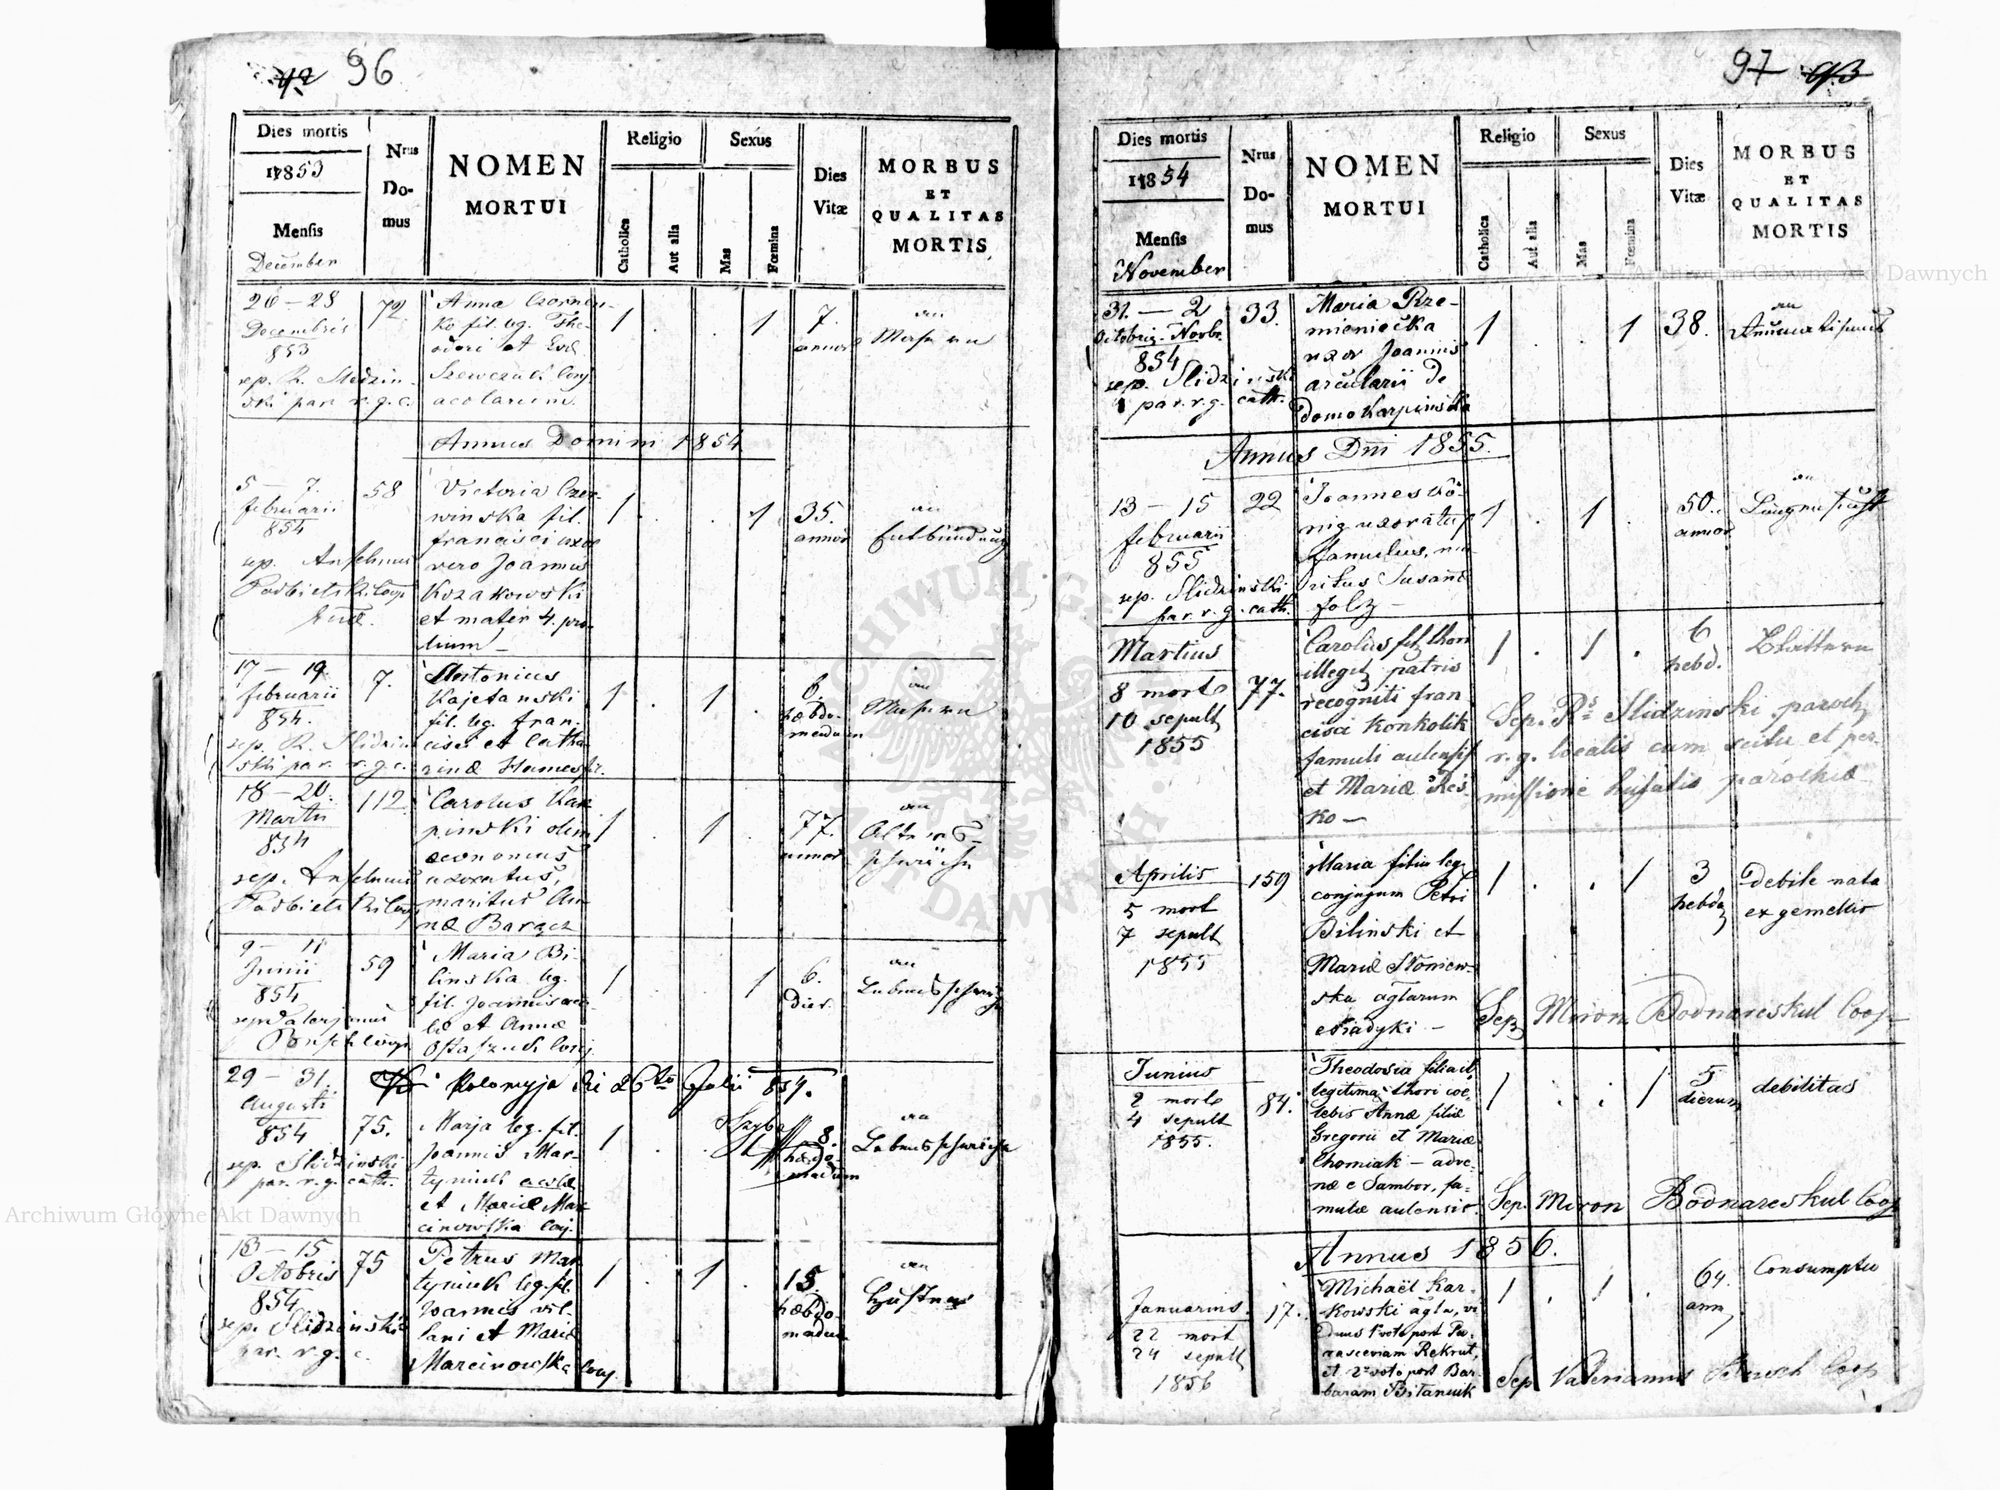 96
Dies mortis
1853
Mensis
December
Nrus Do-
mus
NOMEN
MORTUI
Religio
Catholica
Aut alia
Sexus
Mas
Fœmina
Dies
Vitæ
MORBUS
ET
QUALITAS
MORTIS
26 – 28
Decembris
853
sep. R. Slidzin-
ski par. r. g. c.
72.
Anna
ko fil. leg. The-
odori et Evæ
Szewczuk Conj.
acolarum.
1 . . 1
7.
annor
an
Masern
Annus Domini 1854
5 – 7.
februarii
854
sep. Anselmus
58
Victoria Czer-
winska fil.
francisci uxor
vero Joannis
Kozakowski
et mater 4. pro-
lium –
1 . . 1
35.
annor
an
Entbindung
17 – 19
februarii
854.
sep. R. Slidzin
ski par. r. g. c.
7.
Antonius
Kajetanski
fil. leg. fran-
cisci et Catha-
rinæ
1 . 1 .
6.
hæbdo-
madum
an
Masern
18 – 20.
Martii
854
sep. Anselmus
112.
Carolus Kar
pinski olim
œconomus
uxoratus,
maritus An-
næ Baracz
1 . 1 .
77.
annor
an
Alters-
schwäche
9 – 11
Junii
854
59
Maria Bi-
linska leg.
fil. Joannis
et Annæ
Ostaszuk Conj.
1 . . 1
6.
dier.
an
Lebensschwäche
Kolomyja di 26to Julii 854.
29 – 31.
Augusti
854
sep. Slidzinski
par. r. g. cath.
75.
Marja leg. fil.
Joannis Mar-
tyniuk
et Mariæ Mar-
cinowska Conj.
1 . .
8.
hæbdo-
madum
an
Lebensschwäche
13 – 15
Octobris
854
sep. Slidzinski
par. r. g. c.
75
Petrus Mar
tyniuk leg. fil.
Joannis
et Mariæ
Marcinowska Conj.
1 . 1 .
15.
hæbdo-
madum
an
Husten
97
Dies mortis
1854
Mensis
November
Nrus
Do-
mus
NOMEN
MORTUI
Religio
Catholica
Aut alia
Sexus
Mas
Fœmina
Dies
Vitæ
MORBUS
ET
QUALITAS
MORTIS
31. – 2
Octobris. Novbr.
854
sep. Slidzinski
par. r. g. cath.
33.
Maria Krze-
mieniecka
uxor Joannis
arcularii de
domo Karpinska
1 . . 1
38.
an
Annus Dni 1855.
13 – 15
februarii
855
sep. Slidzinski
par. r. g. cath.
22
Joannes Kö-
nig uxoratus
famulus, ma-
ritus Susannæ
folz –
1 . 1 .
50.
annor
an
Lungensucht
Martius
8 mort
10 sepult
1855
77.
Carolus filz thori
illegit patris
recogniti fran
cisci Konkolik
famuli aulensis
et Mariæ Res-
ko –
1 . 1 .
6
hebd.
Blattern
Sep. Rs Slidzinski paroch
r. g. localis cum scitu et per-
missione hujatis parochiæ
Aprilis
5 mort
7 sepult
1855
159
Maria filia leg.
conjugum Petri
Bilinski et
Mariæ Sloniew-
ska aglarum
1 . . 1
3
hebd
debile nata
ex gemellis
Sep Miron Bodnareskul Coop
Junius
2 mort
4 sepult
1855.
84.
Theodosia filia il-
legitima thori cœ-
lebis Annæ filiæ
Gregorii et Mariæ
Chomiak – adve-
næ e Sambor, fa-
mulæ aulensis.
1 . . 1
5
dierum
debilitas
Sep. Miron Bodnareskul Coop
Annus 1856.
Januarius.
22 mort
24 sepult
1856
17.
Michaël Kar-
kowski agla, vi
duus 1 voto post Pa-
rasceviam Rekrut,
et 2 voto post Bar-
baram Bitaniuk
1 . 1 .
64.
ann
Consumptio
Sep Valerianus Coop
ARCHIWUM GŁÓWNE AKT DAWNYCH
Archiwum Główne Akt Dawnych
Archiwum Główne Akt Dawnych